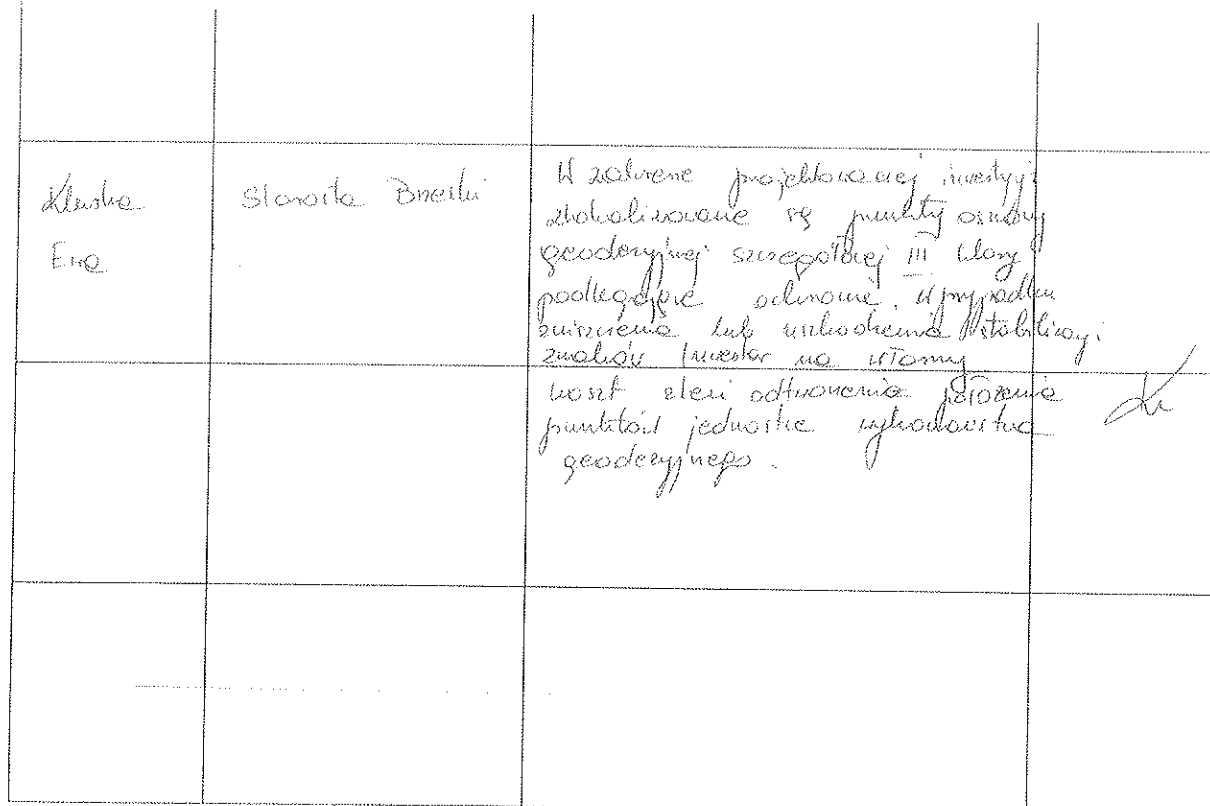 Kluska
Ewa
Starosta Brzeski
W zakresie projektowanej inwestycji
zlokalizowane są punkty osnowy
geodezyjnej szczegółowej III klasy
podlegające ochronie. W przypadku
zniszczenia lub uszkodzenia stabilizacji
znaków Inwestor na własny
koszt zleci odtworzenia położenia
punktów jednostce wykonawstwa
geodezyjnego.